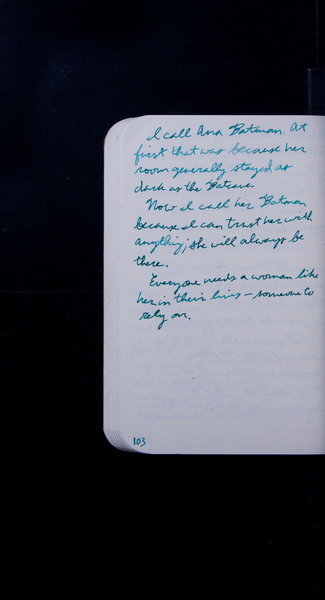 I call Ana Batman. At
first that was because her
room generally stayed as
dark as the Batcave.
Now I call her Batman
because I can trust her with
anything; she will always be
there.
Everyone needs a woman like
her in their lives – someone to
rely on.
103